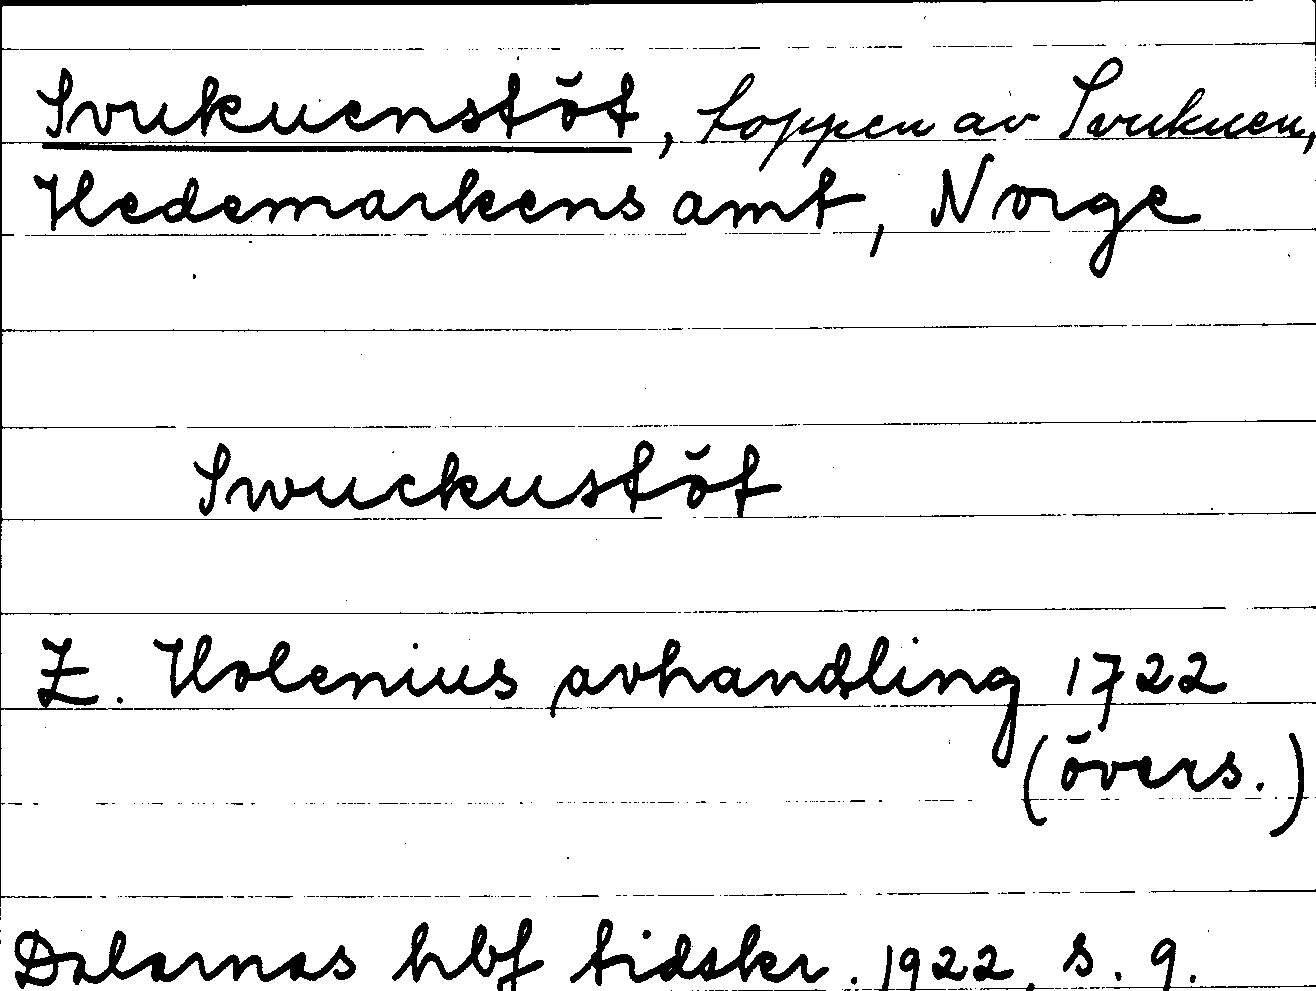 Svukuenstöt, toppen av Svukuen,
Hedemarkens amt, Norge
Swuckustöt
Z. Holenius avhandling 1722
(övers.)
Dalarnas hbf tidskr. 1922, s. 9.